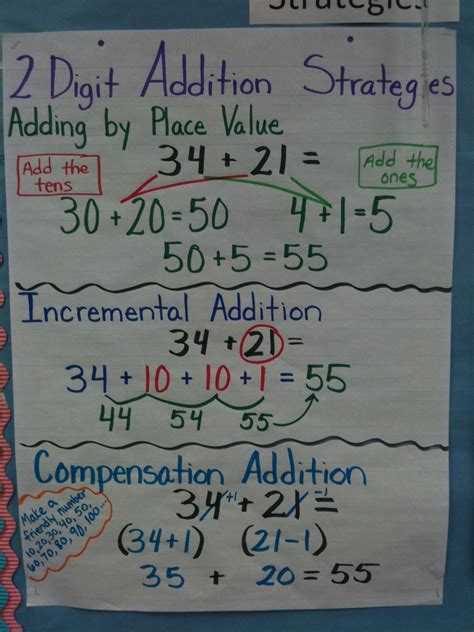 Strategies
2 Digit Addition Strategies
Adding by Place Value
34 + 21 =
Add the
tens
Add the
ones
30 + 20 = 50 4 + 1 = 5
50 + 5 = 55
Incremental Addition
34 + 21 =
34 + 10 + 10 + 1 = 55
44 54 55
Compensation Addition
34 +1 + 21 -1 =
Make a
friendly number
10, 20, 30, 40, 50,
60, 70, 80, 90, 100...
(34+1) (21-1)
35 + 20 = 55